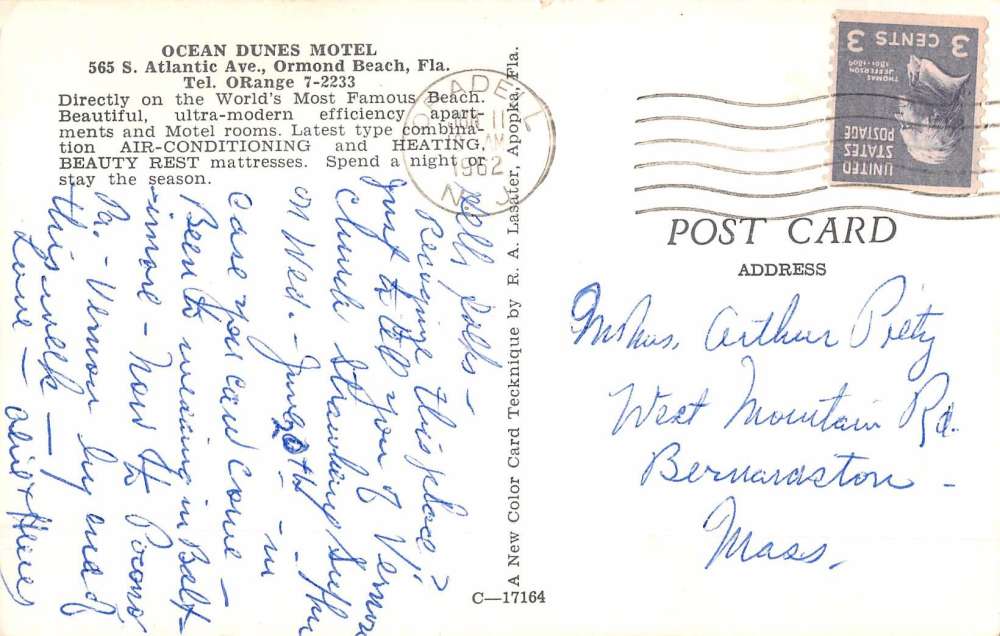 OCEAN DUNES MOTEL
565 S. Atlantic Ave., Ormond Beach, Fla.
Tel. ORange 7-2233
Directly on the World's Most Famous Beach.
Beautiful, ultra-modern efficiency apart-
ments and Motel rooms. Latest type combina-
tion AIR-CONDITIONING and HEATING,
BEAUTY REST mattresses. Spend a night or
stay the season.
Hello folks —
Recognize this place?
Just to tell you of Vernon
Church Strawberry Supper
on Wed. - June 20th - in
case you can come -
Been to meeting in Balt-
imore - Now to Pocono
Pa. - Vernon by end of
this week —
Love —
A New Color Card Tecknique by R. A. Lasater, Apopka, Fla.
C—17164
ORADELL
JUN 11
AM
1962
N. J.
3 CENTS 3
THOMAS
JEFFERSON
1801-1809
UNITED
STATES
POSTAGE
POST CARD
ADDRESS
Arthur Piety
West Mountain Rd.
Bernardston -
Mass.